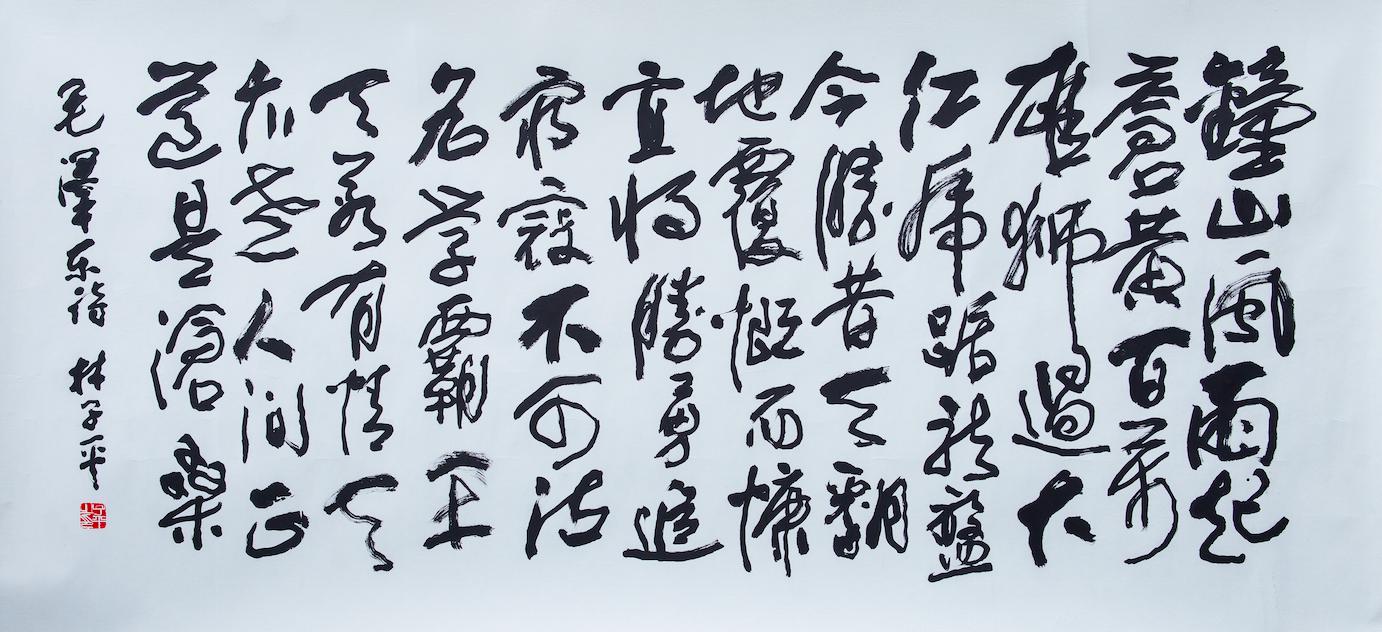 鐘山風雨起
蒼黃百萬
雄獅過大
江虎踞龍盤
今勝昔天翻
地覆慨而慷
宜將勝勇追
窮寇不可沽
名學霸王
天若有情天
亦老人間正
道是滄桑
毛澤东詩 林子平